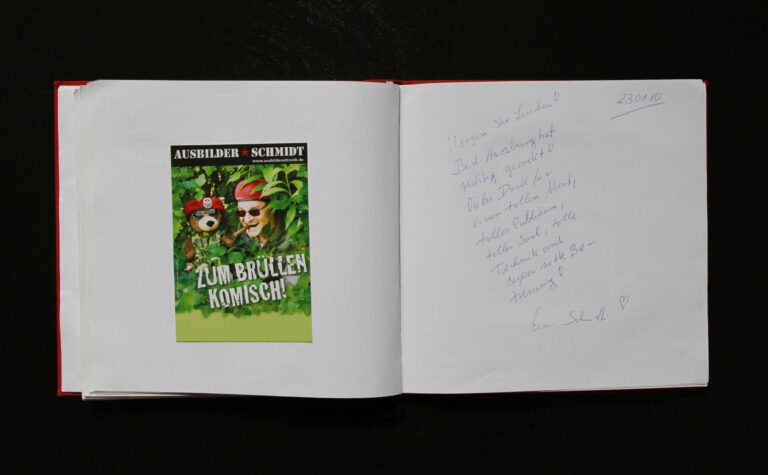 AUSBILDER ★ SCHMIDT
www.ausbilderschmidt.de
ZUM BRÜLLEN
KOMISCH!
23.01.10
Morgen Ihr Luschen!
Bad Harzburg hat
richtig gerockt!
Vielen Dank für
einen tollen Abend,
tolles Publikum,
toller Saal, tolle
Technik und
super nette Be-
treuung!
Schmidt ♡